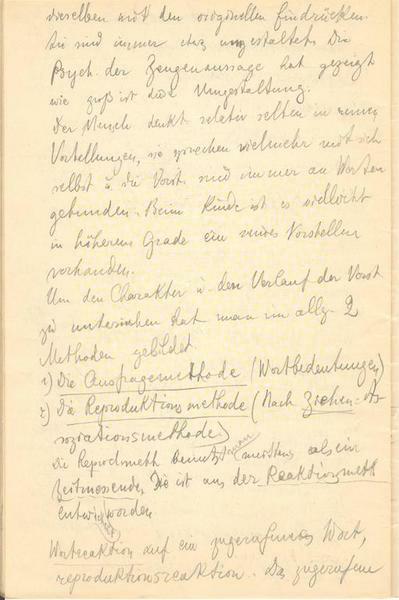 dieselben mit den originellen Eindrücken.
Sie sind immer etwas umgestaltet. Die
Psych. der Zeugenaussage hat gezeigt
wie groß ist diese Umgestaltung.
Der Mensch denkt relativ selten in reinen
Vorstellungen, sie sprechen vielmehr mit sich
selbst u. die Vorst. sind immer an Worten
gebunden. Beim Kinde ist es vielleicht
in höherem Grade ein reines Vorstellen
vorhanden.
Um den Charakter u. den Verlauf der Vorst
zu untersuchen hat man im allg. 2
Methoden gebildet
1) Die Ausfragemethode (Wortbedeutungen)
2) Die Reproduktionsmethode (Nach Ziehen - As
soziationsmethode)
Die Reprodmeth benutzt man meistens als ein
Zeitmessende, Die ist aus der Reaktionsmeth
entwickelt worden
Wortreaktion auf ein zugerufenes Wort,
reproduktionsreaktion. Das zugerufene